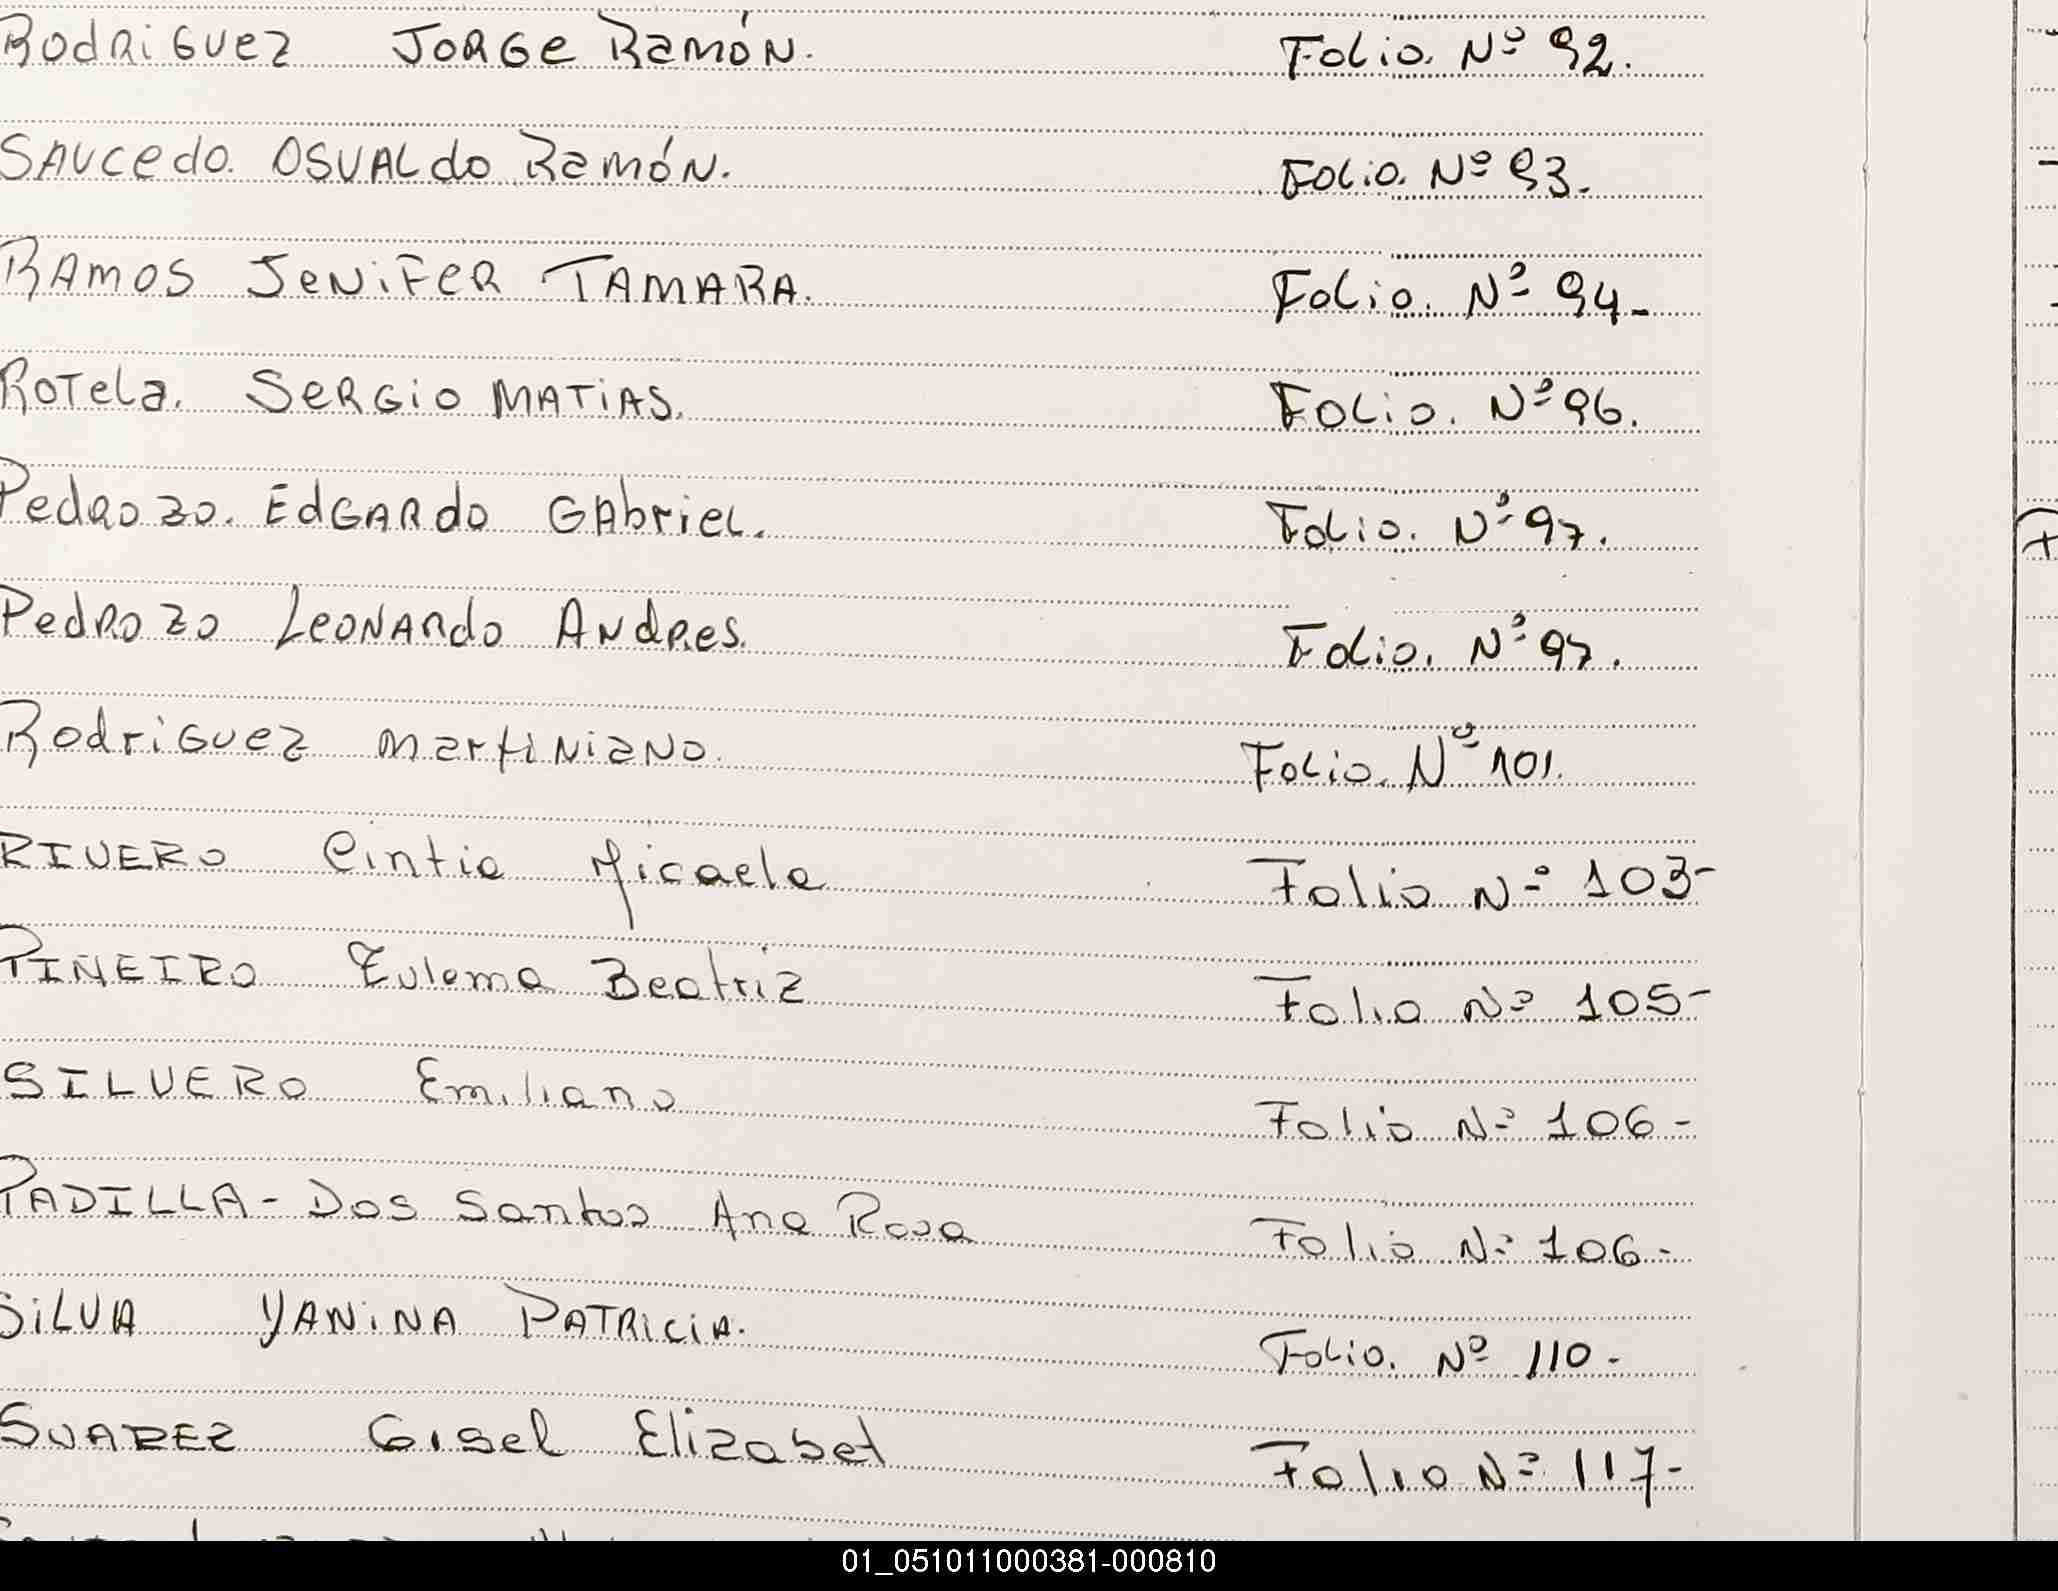 Rodriguez Jorge Ramón. Folio. Nº 92.
Saucedo. Osvaldo Ramón. Folio. Nº 93.
Ramos Jenifer Tamara. Folio. Nº 94-
Rotela. Sergio Matias. Folio. Nº 96.
Pedrozo. Edgardo Gabriel. Folio. Nº 97.
Pedrozo Leonardo Andres. Folio. Nº 97.
Rodriguez Martiniano. Folio. Nº 101.
RIVERO Cintia Micaela Folio Nº 103-
PINEIRO Zulema Beatriz Folio Nº 105-
SILVERO Emiliano Folio Nº 106-
PADILLA - Dos Santos Ana Rosa Folio Nº 106-
Silva Yanina Patricia. Folio. Nº 110-
SUAREZ Gisel Elizabet Folio Nº 117-
01_051011000381-000810